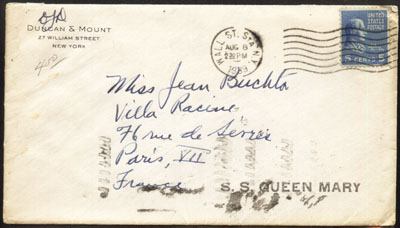 DUNCAN & MOUNT
27 WILLIAM STREET
NEW YORK
WALL ST. STA. N.Y.
AUG 8
PM
1938
UNITED STATES POSTAGE
5 CENTS 5
Miss Jean Buchta
Villa Racine
76 rue de Sèvres
Paris, VII
France
S. S. QUEEN MARY